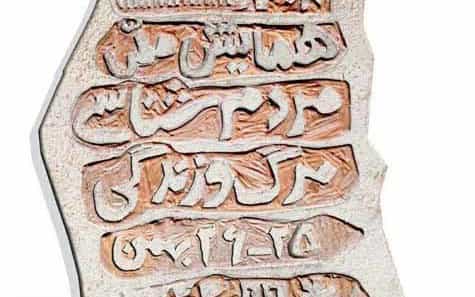 همایش ملی
مردم شناسی
مرگ و زندگی
۲۵-۲۶ بهمن